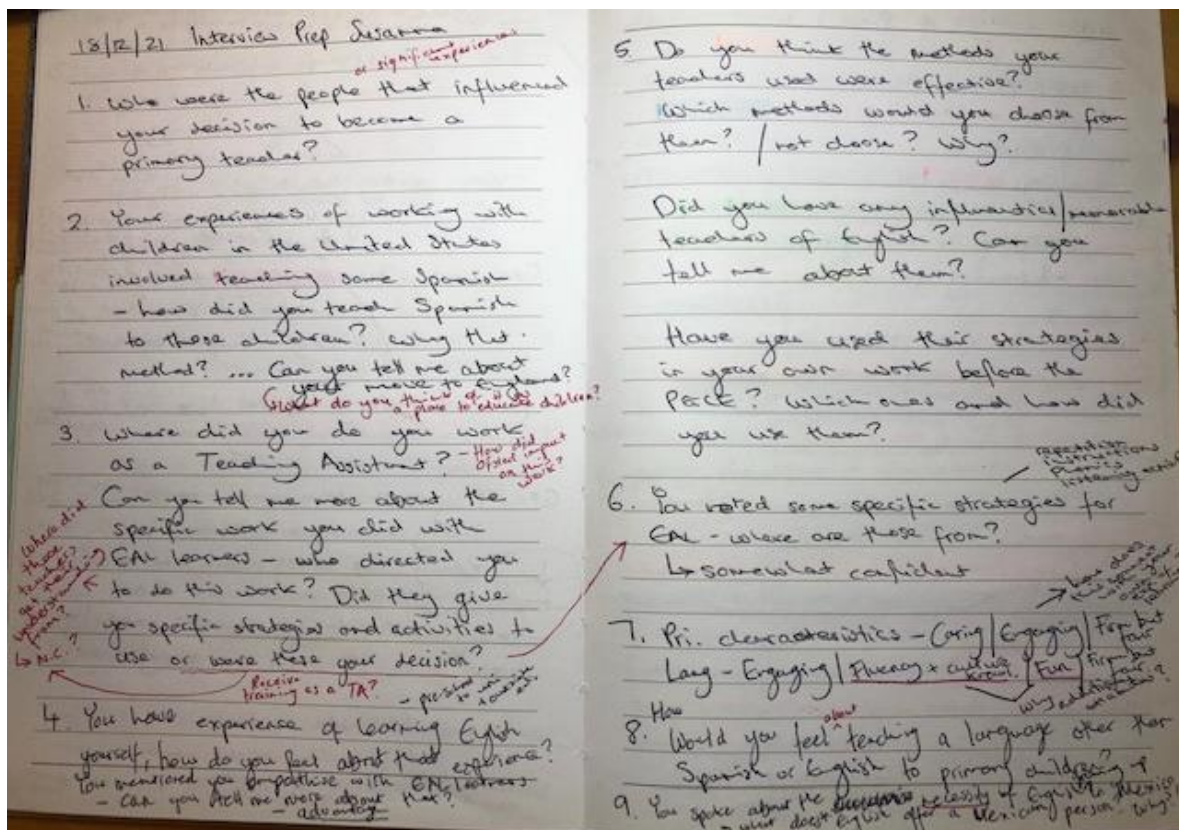 18/12/21 Interview Prep Susanna
or significant experiences
1. Who were the people that influenced
your decision to become a
primary teacher?
2. Your experiences of working with
children in the United States
involved teaching some Spanish
- how did you teach Spanish
to those children? Why that
method? ... Can you tell me about
your move to England?
What do you think of it as
a place to educate children?
3. Where did you do you work
as a Teaching Assistant?
- How did
Ofsted impact
on this
work?
Can you tell me more about the
specific work you did with
EAL learners - who directed you
to do this work? Did they give
you specific strategies and activities to
use or were these your decision?
Where did
those
teachers
get their
understanding
from?
↳ N.C.?
Receive
training as a TA?
4. You have experience of learning English
yourself, how do you feel about that experience?
You mentioned you empathise with EAL learners
- Can you tell me more about that?
- advantage
5. Do you think the methods your
teachers used were effective?
Which methods would you choose from
them? / not choose? Why?
Did you have any influential/memorable
teachers of English? Can you
tell me about them?
Have you used their strategies
in your own work before the
PGCE? Which ones and how did
you use them?
repetition
instructions
phonics
listening
6. You noted some specific strategies for
EAL - where are these from?
↳ somewhat confident
7. Pri. characteristics - Caring | Engaging | Firm but
fair
Lang - Engaging | Fluency + culture
knowl. | Fun | Firm but
fair
how does
8. How
Would you feel about teaching a language other than
Spanish or English to primary children?
9. You spoke about the necessity of English to Mexico
- what does English offer a Mexican person? Why?